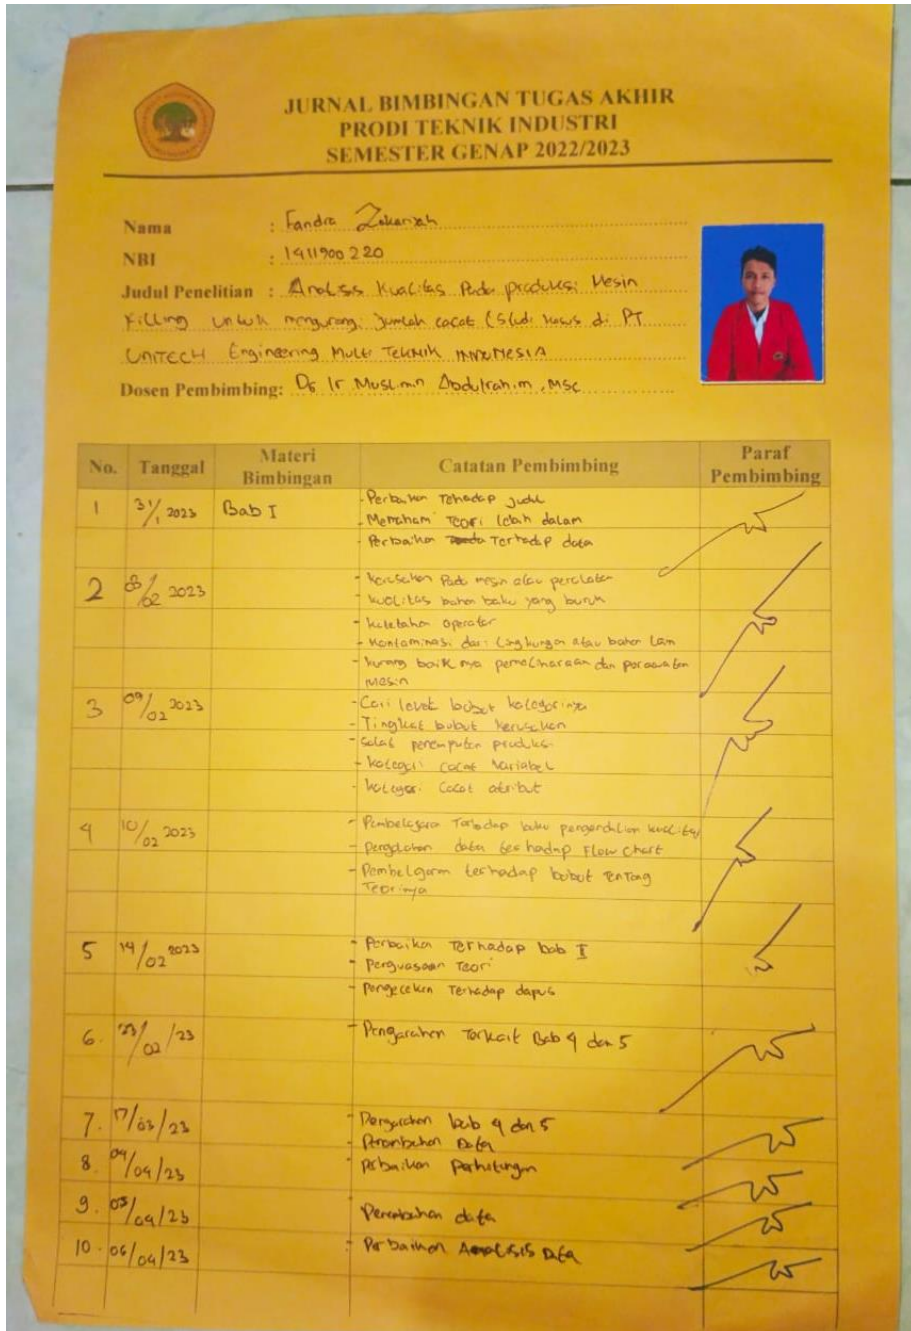 JURNAL BIMBINGAN TUGAS AKHIR
PRODI TEKNIK INDUSTRI
SEMESTER GENAP 2022/2023
Nama : Fandra Zakariah
NBI : 1411900220
Judul Penelitian : Analisis Kualitas Pada produksi Mesin
Filling untuk mengurangi Jumlah cacat (Studi kasus di PT
UNITECH Engineering Multi Teknik INDONESIA
Dosen Pembimbing: Dr Ir Muslimin Abdulrahim, MSc
No. Tanggal Materi Bimbingan Catatan Pembimbing Paraf Pembimbing
1 31/1 2023 Bab I - Perbaikan Terhadap judul
- Memahami Teori lebih dalam
- Perbaikan Terhadap data
2 08/02 2023 - Kerusakan Pada mesin atau peralatan
- kualitas bahan baku yang buruk
- kelelahan operator
- Kontaminasi dari lingkungan atau bahan lain
- kurang baik nya pemeliharaan dan perawatan
mesin
3 09/02 2023 - Cari level bobot kategorinya
- Tingkat bobot kerusakan
- produksi
- kategori cacat Variabel
- kategori Cacat atribut
4 10/02 2023 - Terhadap buku pengendalian kualitas
- Pengolahan data terhadap Flow Chart
- terhadap bobot Tentang
Teorinya
5 14/02 2023 - Perbaikan Terhadap bab I
- Penguasaan Teori
- Pengecekan Terhadap dapus
6. 23/02/23 - Pengarahan Terkait Bab 4 dan 5
7. 17/03/23 - Pengarahan bab 4 dan 5
- Penambahan Data
8. 04/04/23 - Perbaikan Perhitungan
9. 05/04/23 Penambahan data
10. 06/04/23 - Perbaikan Analisis Data